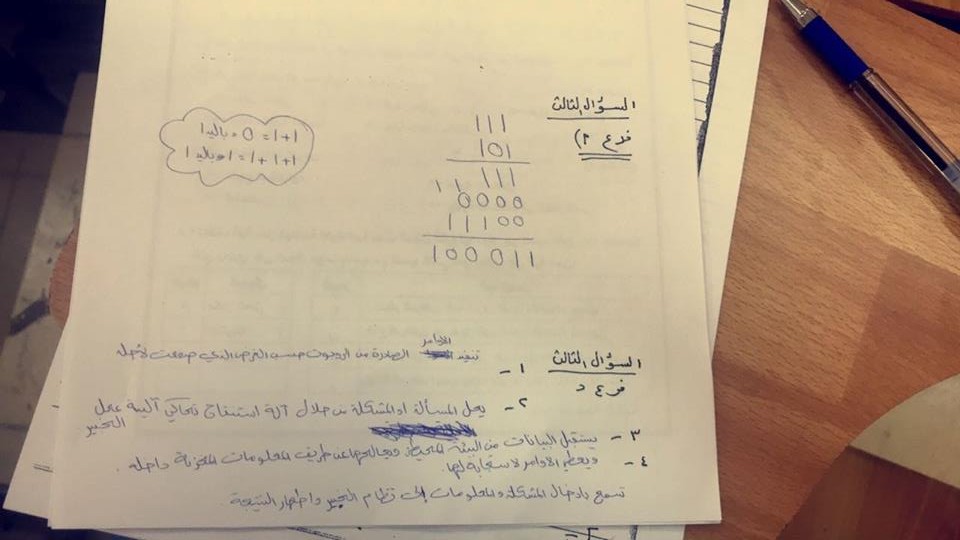 السؤال الثالث
فرع ٢)
111
101
1+1=0 وباليد 1
1+1+1=1 وباليد 1
111
1 1
0000
11100
100011
السؤال الثالث
فرع د
الأوامر
١- تنفيذ الصادرة من الروبوت حسب الغرض الذي صنعت لأجله
٢- يحل المسألة او المشكلة من خلال آلة استنتاج تحاكي آلية عمل
الخبير
٣- يستقبل البيانات من البيئة المحيطة ويعالجها عن طريق المعلومات المخزنة داخله.
ويعطي الأوامر لاستجابة لها.
٤-
تسمح بادخال المشكلة والمعلومات إلى نظام الخبير واظهار النتيجة